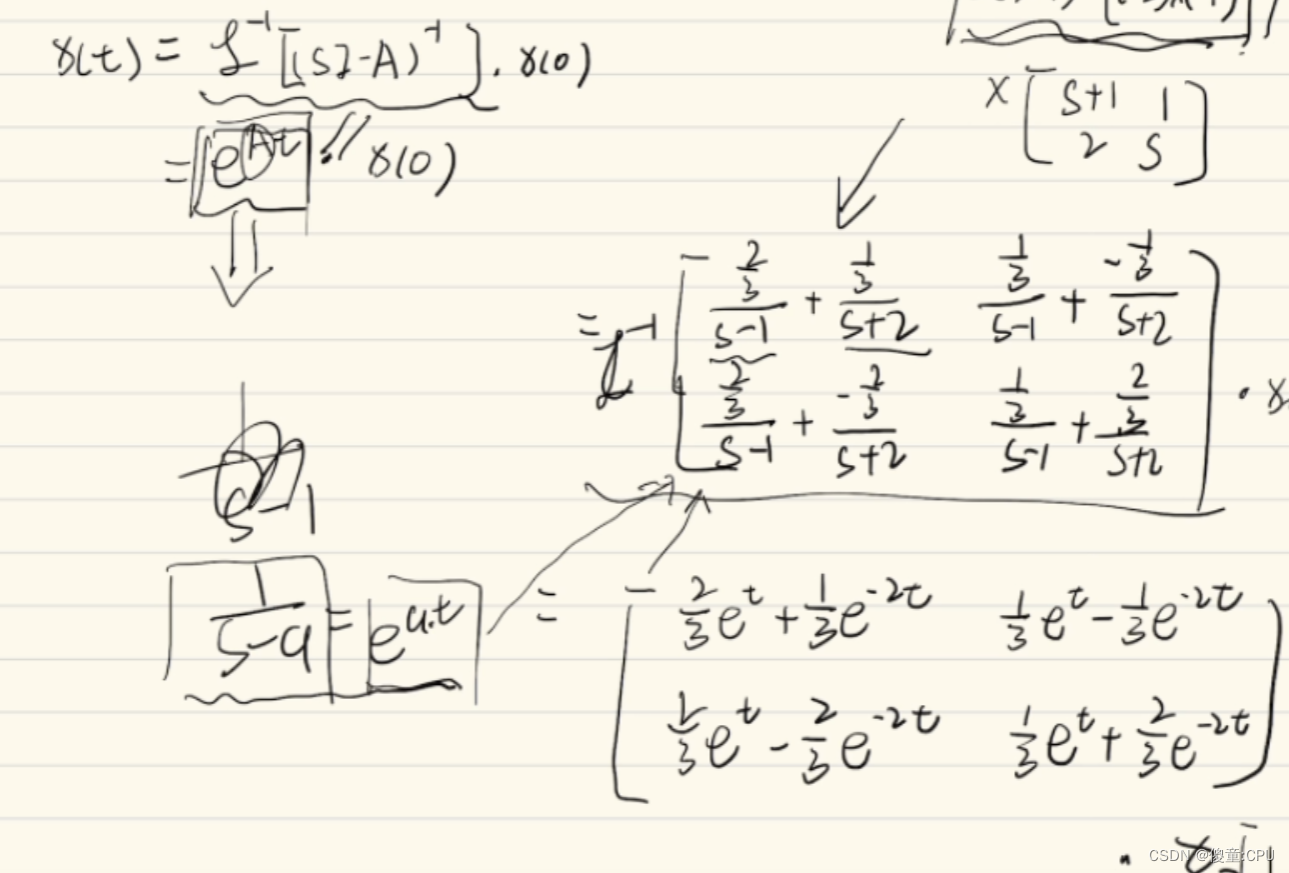 x(t) = ℒ⁻¹[(sI-A)⁻¹]. x(0)
= e^{At} . x(0)
x [ s+1 1
2 s ]
= ℒ⁻¹ [ \frac{\frac{2}{3}}{s-1} + \frac{\frac{1}{3}}{s+2} \frac{\frac{1}{3}}{s-1} + \frac{-\frac{1}{3}}{s+2}
\frac{\frac{2}{3}}{s-1} + \frac{-\frac{2}{3}}{s+2} \frac{\frac{1}{3}}{s-1} + \frac{\frac{2}{3}}{s+2} ] . x
s-1
\frac{1}{s-a} = e^{a.t}
= [ \frac{2}{3}e^{t} + \frac{1}{3}e^{-2t} \frac{1}{3}e^{t} - \frac{1}{3}e^{-2t}
\frac{2}{3}e^{t} - \frac{2}{3}e^{-2t} \frac{1}{3}e^{t} + \frac{2}{3}e^{-2t} ]
CSDN @傻童:CPU